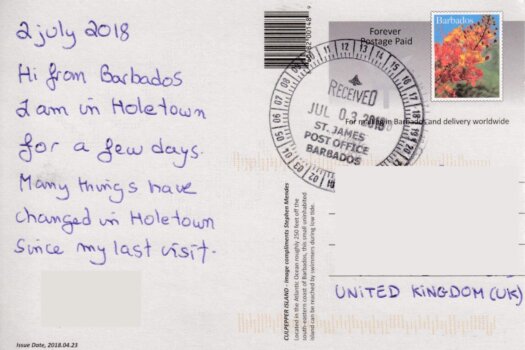 2 july 2018
Hi from Barbados
I am in Holetown
for a few days.
Many things have
changed in Holetown
Since my last visit.
Issue Date, 2018.04.23
CULPEPPER ISLAND - image compliments Stephen Mendes
Located in the Atlantic Ocean roughly 250 feet off the
south-eastern coast of Barbados, this small uninhabited
island can be reached by swimmers during low tide.
Forever
Postage Paid
Barbados
For mailing in Barbados and delivery worldwide
RECEIVED
JUL 03 2018
ST. JAMES
POST OFFICE
BARBADOS
UNITED KINGDOM (UK)